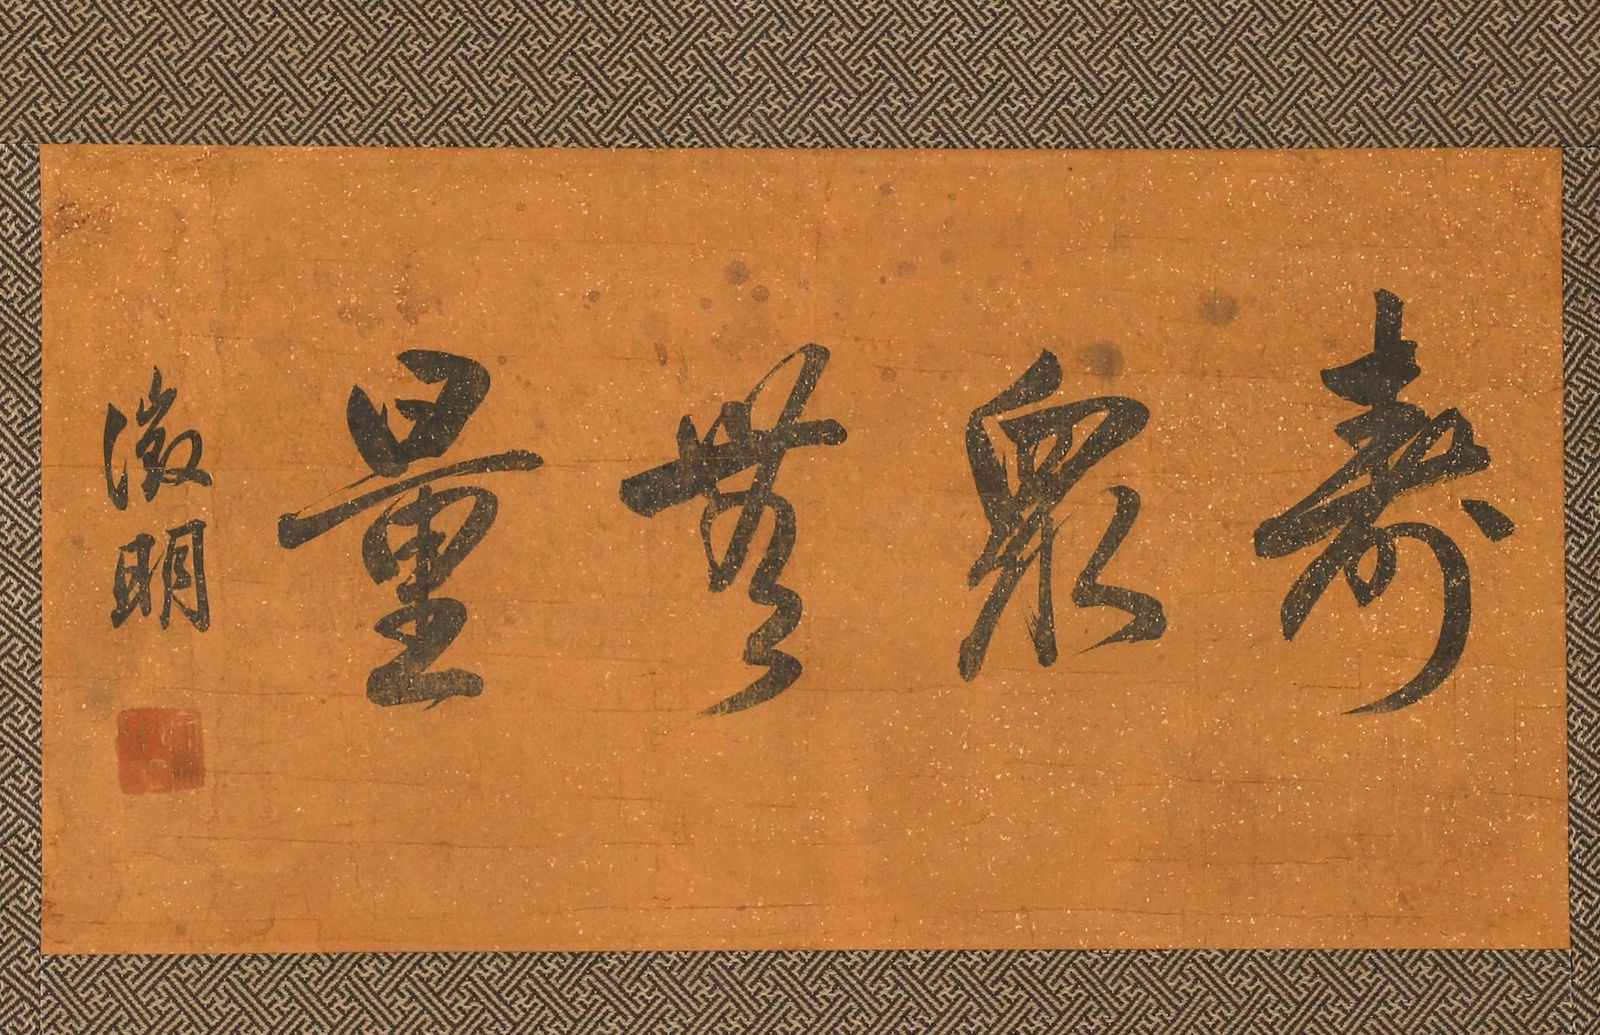 壽眾無量
徵明